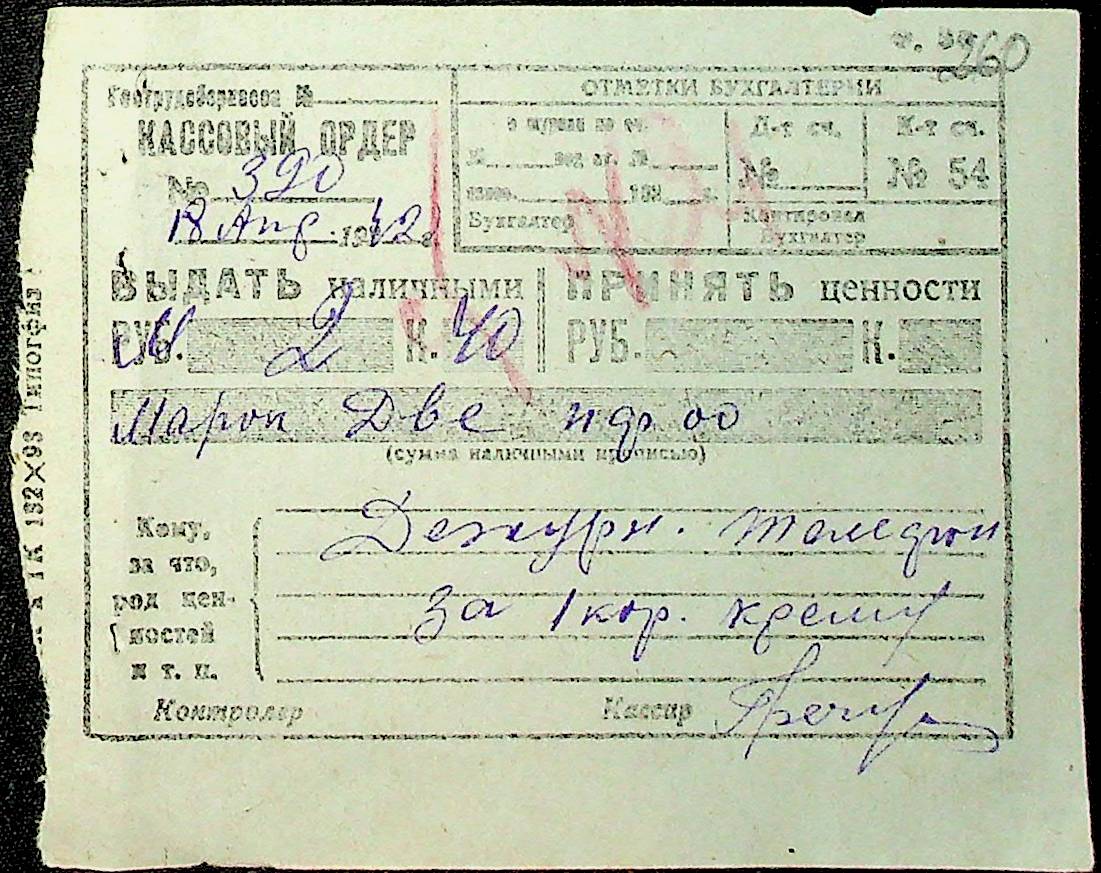 260
Гострудсберкасса №
КАССОВЫЙ ОРДЕР
№ 390
18 Апр 1942 г.
ОТМЕТКИ БУХГАЛТЕРИИ
№ вед. №
193 г.
Бухгалтер
Д-т сч.
№
К-т сч.
№ 54
Контировал
Бухгалтер
ВЫДАТЬ наличными
РУБ. 2 К. 40
ПРИНЯТЬ ценности
РУБ. К.
Марок Две
(сумма наличными прописью)
Кому,
за что,
род цен-
ностей
и т. п.
Дежурн.
за 1 кор. крему
Контролер
Кассир
182×93